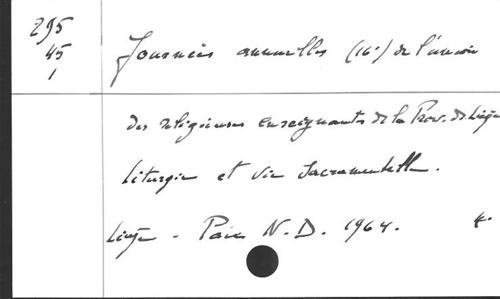 295
45
1
Journées annuelles (16e) de l'union
des religieuses enseignantes de la Prov. de Liège
Liturgie et vie sacramentelle.
Liège - Paix N.D. 1964. 4.